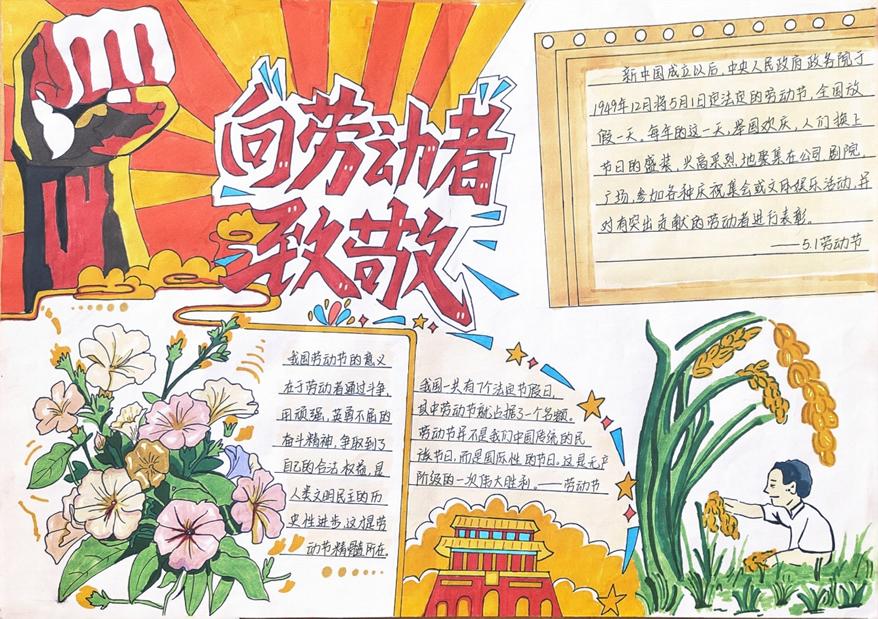 向劳动者
致敬
新中国成立以后,中央人民政府政务院于
1949年12月将5月1日定法定的劳动节,全国放
假一天。每年的这一天,举国欢庆,人们换上
节日的盛装,兴高采烈地聚集在公园、剧院、
广场,参加各种庆祝集会或文体娱乐活动,并
对有突出贡献的劳动者进行表彰。
——5.1劳动节
我国劳动节的意义
在于劳动者通过斗争,
用顽强,英勇不屈的
奋斗精神,争取到了
自己的合法权益,是
人类文明民主的历
史性进步,这才是劳
动节精髓所在.
我国一共有7个法定节假日,
其中劳动节就占据了一个名额。
劳动节并不是我们中国传统的民
族节日,而是国际性的节日。这是无产
阶级的一次伟大胜利。——劳动节